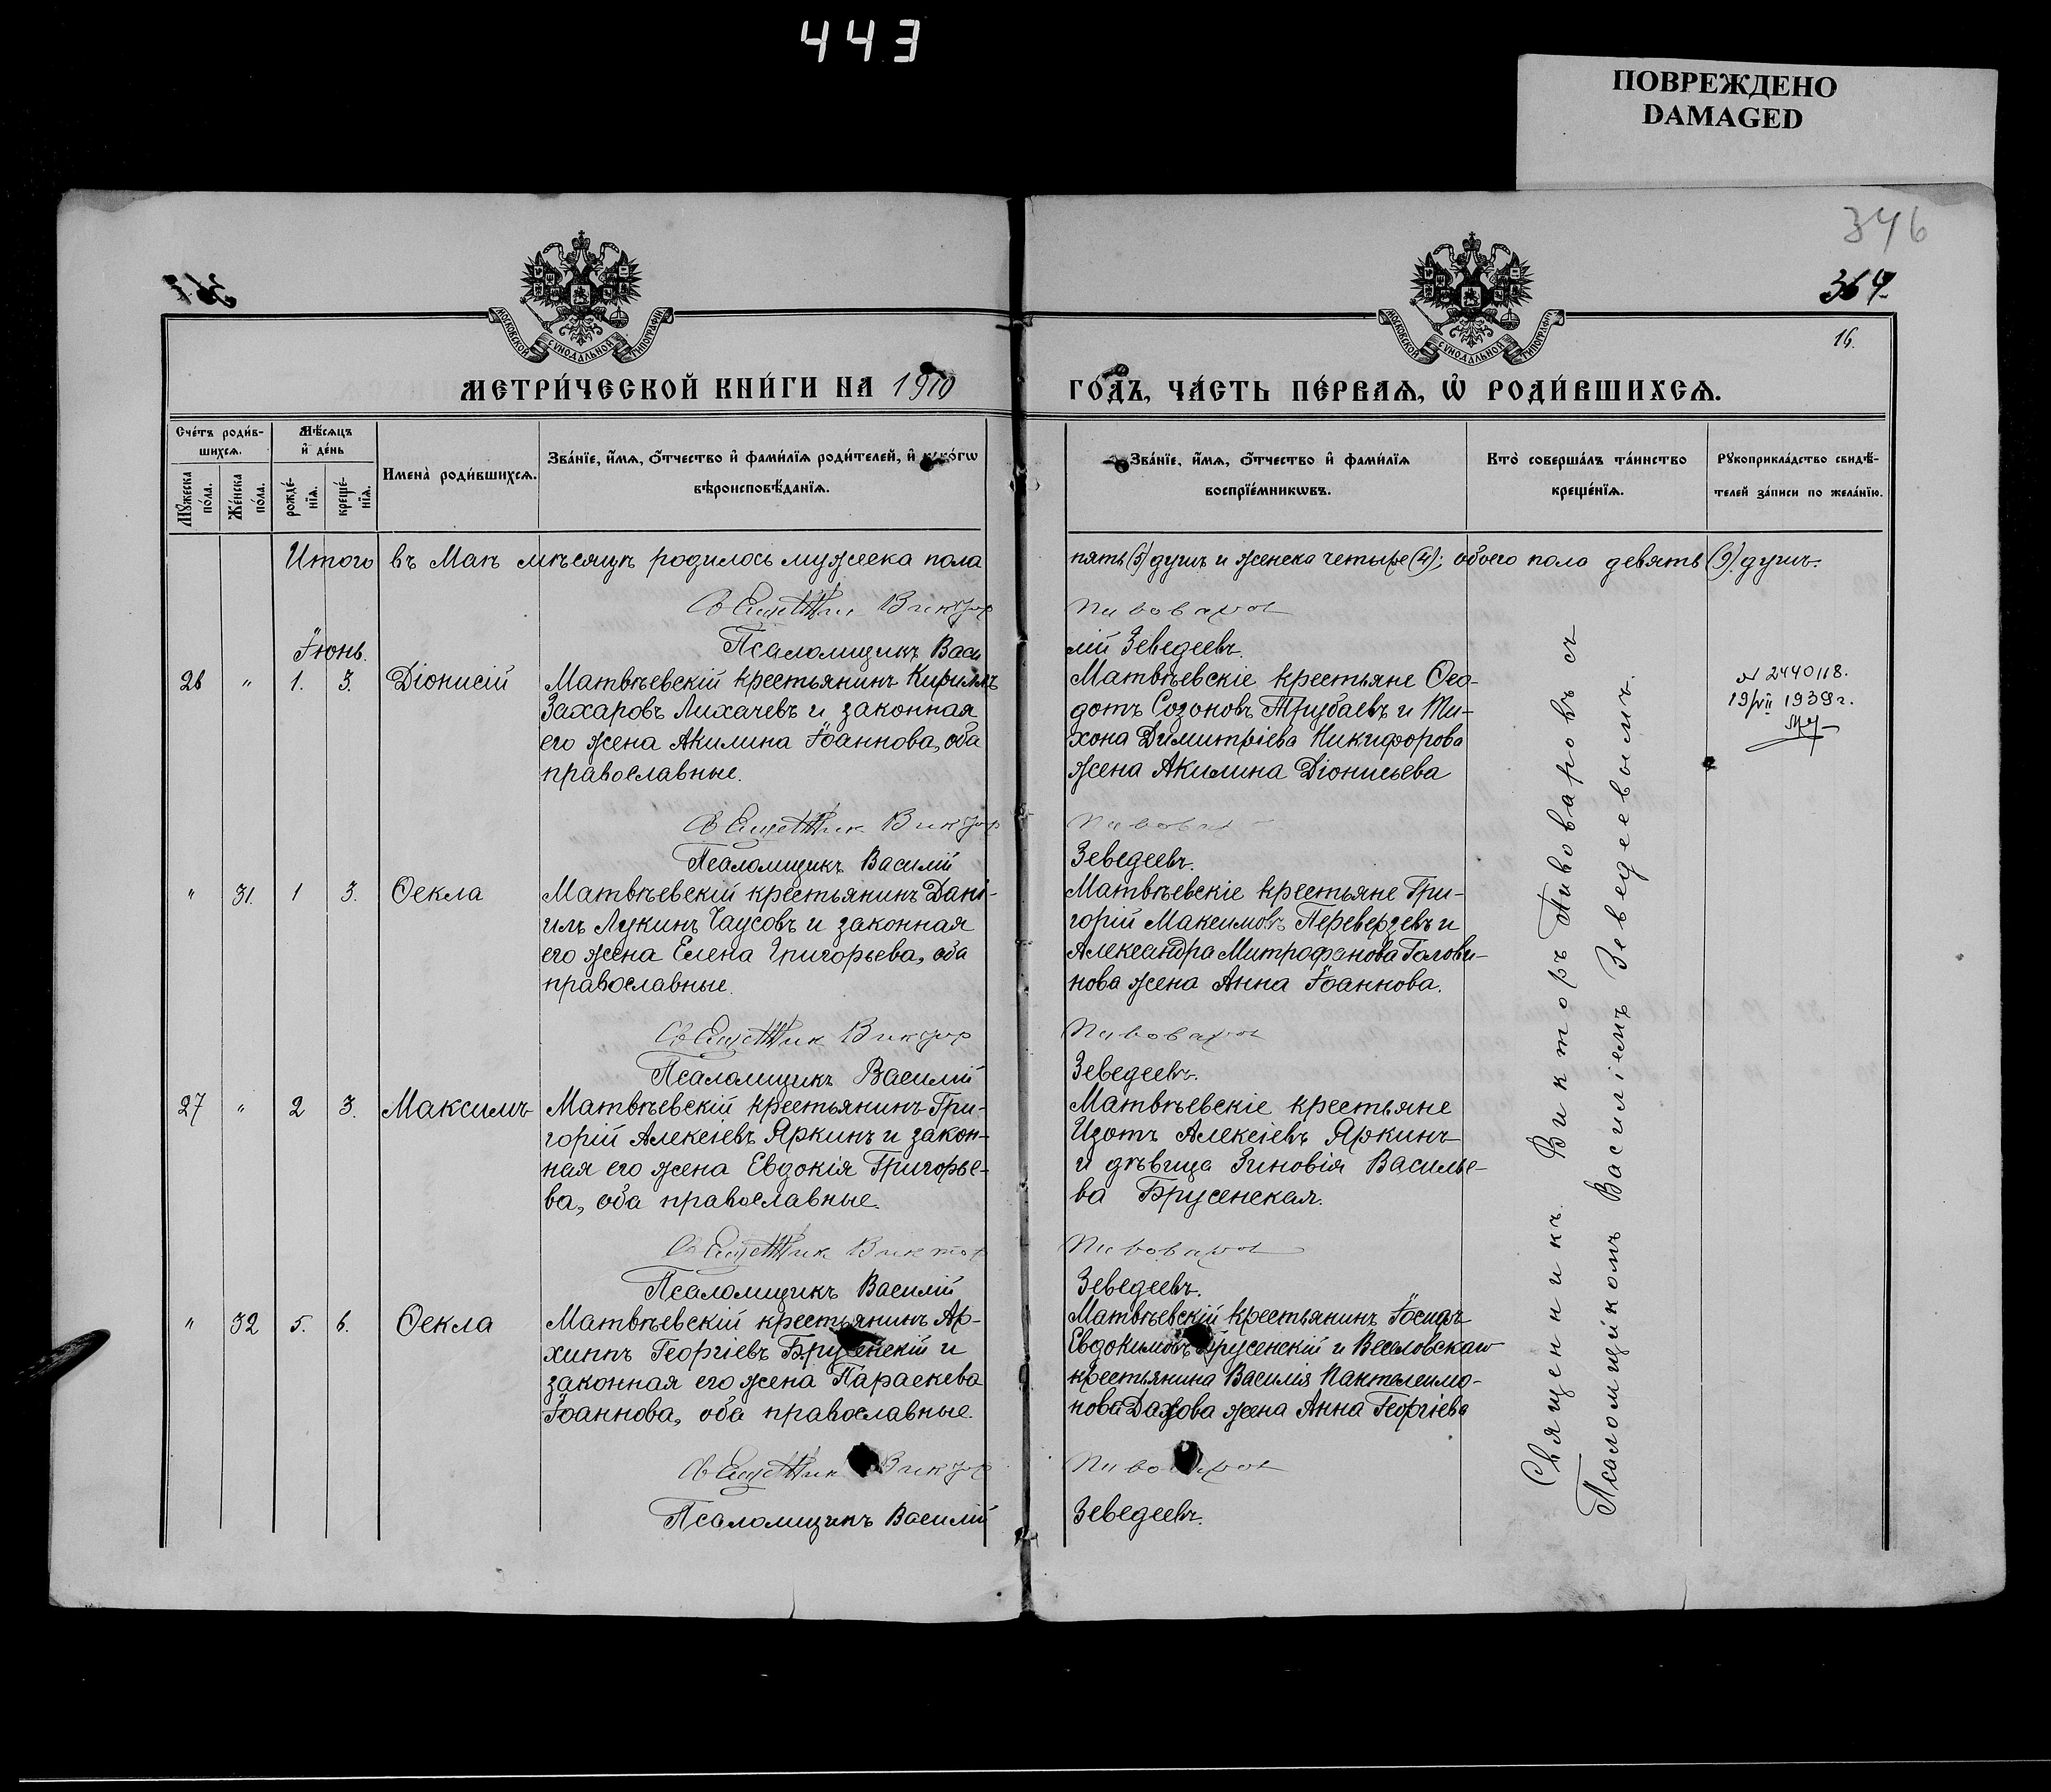 443
ПОВРЕЖДЕНО
DAMAGED
346
364.
16.
МОСКОВСКОЙ СѴНОДАЛЬНОЙ ТИПОГРАФІИ
МОСКОВСКОЙ СѴНОДАЛЬНОЙ ТИПОГРАФІИ
МЕТРИ́ЧЕСКОЙ КНИ́ГИ НА 1910
ГО́ДЪ, ЧА́СТЬ ПЕ́РВАѦ, Ѡ҆ РОДИ́ВШИХСѦ.
Сче́тъ роди́в-
шихсѧ.
Мѣ́сѧцъ
и҆ де́нь
Мꙋ́жеска
по́ла.
Же́нска
по́ла.
рожде́-
нїѧ.
креще́-
нїѧ.
Имена̀ роди́вшихсѧ.
Зва́нїе, и҆́мѧ, ѻ҆́тчество и҆ фами́лїѧ роди́телей, и҆ како́гѡ
вѣроисповѣ́данїѧ.
Зва́нїе, и҆́мѧ, ѻ҆́тчество и҆ фами́лїѧ
воспрїе́мникѡвъ.
Кто̀ соверша́лъ та́инство
креще́нїѧ.
Рꙋкоприкла́дство свидѣ́-
телей за́писи по жела́нїю.
Итого въ Маѣ мѣсяцѣ родилось мужеска пола
пять (5) душъ и женска четыре (4); обоего пола девять (9) душъ.
Священникъ Викторъ Пивоваровъ
Псаломщикъ Васи
лій Зеведеевъ.
Іюнь.
26 " 1. 3. Діонисій
Матвѣевскій крестьянинъ Кириллъ
Захаровъ Лихачевъ и законная
его жена Акилина Іоаннова, оба
православные.
Матвѣевскіе крестьяне Ѳео-
дотъ Созоновъ Трубаевъ и Ти-
хона Димитріева Никифорова
жена Акилина Діонисьева
2440118.
19/VII 1939 г.
Священникъ Викторъ Пивоваровъ
Псаломщикъ Василій
Зеведеевъ.
" 31. 1 3. Ѳекла
Матвѣевскій крестьянинъ Дані-
илъ Лукинъ Чаусовъ и законная
его жена Елена Григорьева, оба
православные.
Матвѣевскіе крестьяне Гри-
горій Максимовъ Переверзевъ и
Александра Митрофанова Голови-
нова жена Анна Іоаннова.
Священникъ Викторъ Пивоваровъ
Псаломщикъ Василій
Зеведеевъ.
27 " 2 3. Максимъ
Матвѣевскій крестьянинъ Гри-
горій Алексіевъ Яркинъ и закон-
ная его жена Евдокія Григорье-
ва, оба православные.
Матвѣевскіе крестьяне
Изотъ Алексіевъ Яркинъ
и дѣвица Зиновія Василье-
ва Брусенская.
Священникъ Викторъ Пивоваровъ
Псаломщикъ Василій
Зеведеевъ.
" 32 5. 6. Ѳекла
Матвѣевскій крестьянинъ Ар-
хиппъ Георгіевъ Брусенскій и
законная его жена Параскева
Іоаннова, оба православные.
Матвѣевскій крестьянинъ Іосифъ
Евдокимовъ Брусенскій и Веселовскаго
крестьянина Василія Пантелеимо-
нова жена Анна Георгіева
Священникъ Викторъ Пивоваровъ
Псаломщикъ Василій
Зеведеевъ.
Священникъ Викторъ Пивоваровъ съ
Псаломщикомъ Василіемъ Зеведеевымъ.